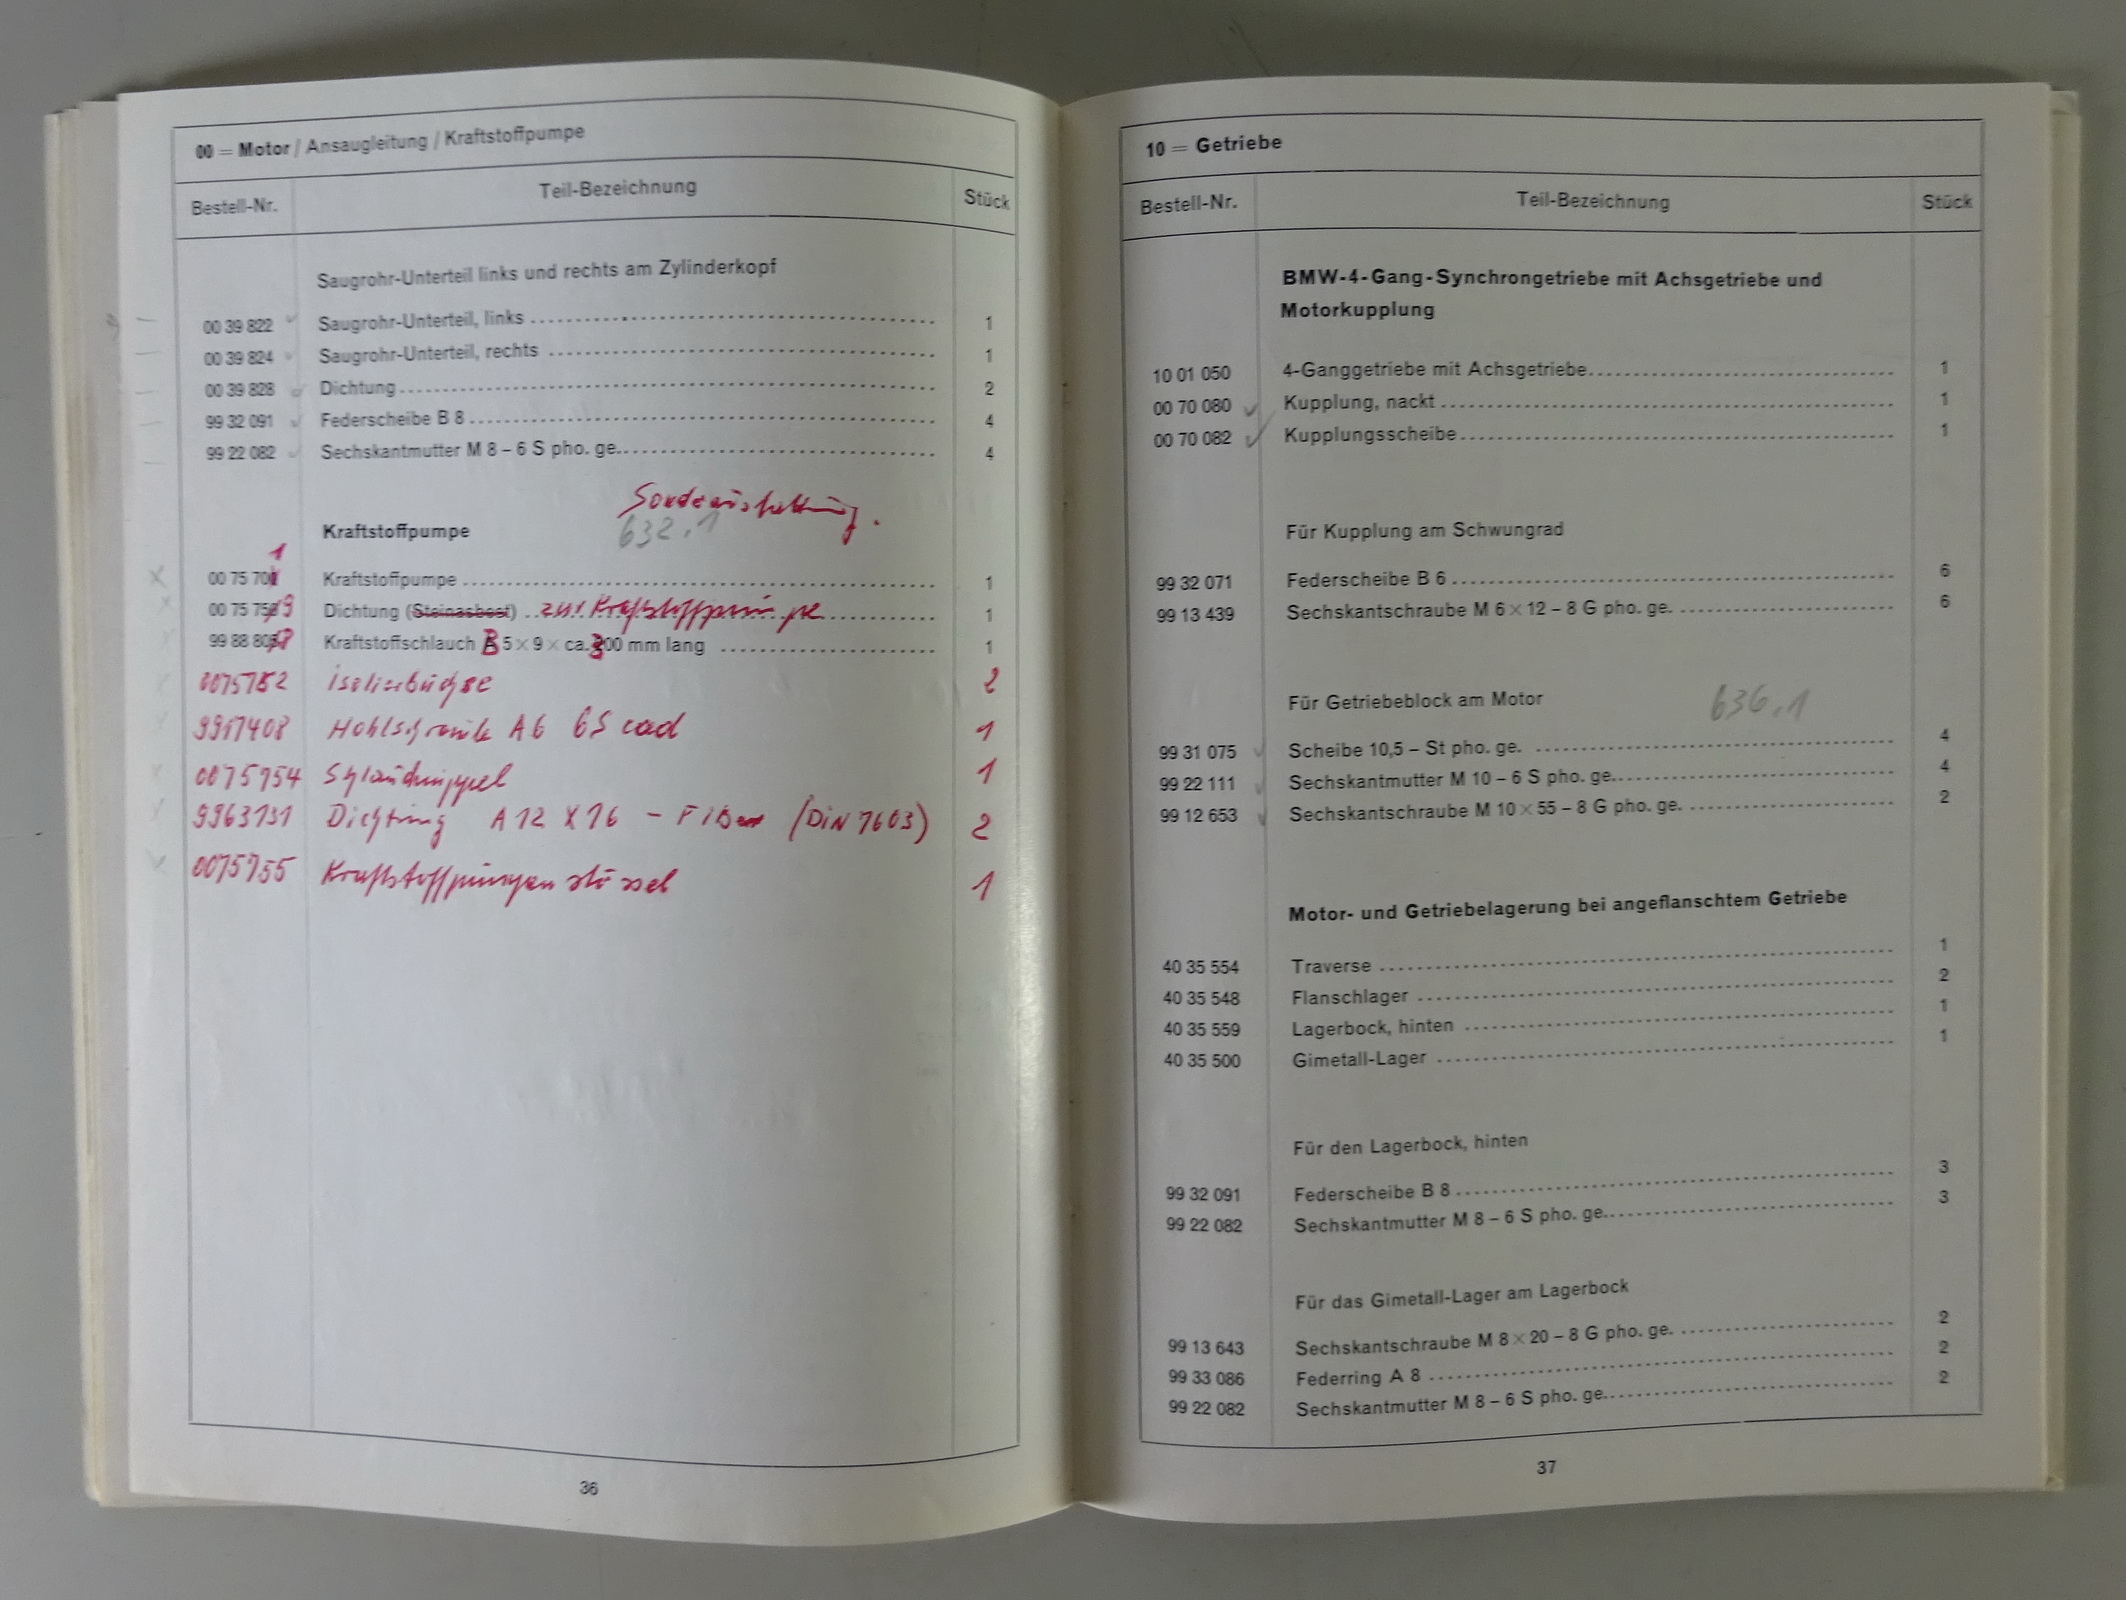 00 = Motor / Ansaugleitung / Kraftstoffpumpe
Bestell-Nr. Teil-Bezeichnung Stück
Saugrohr-Unterteil links und rechts am Zylinderkopf
00 39 822 Saugrohr-Unterteil, links 1
00 39 824 Saugrohr-Unterteil, rechts 1
00 39 828 Dichtung 2
99 32 091 Federscheibe B 8 4
99 22 082 Sechskantmutter M 8 – 6 S pho. ge. 4
Sonderausstattung.
Kraftstoffpumpe 632.1
1
00 75 70 Kraftstoffpumpe 1
00 75 75 9 Dichtung (Steinasbest) zur Kraftstoffpumpe 1
99 88 80 Kraftstoffschlauch B 5 × 9 × ca. 00 mm lang 1
0075752 Isolierbüchse 2
9917408 Hohlschraube A6 6S cad 1
0075754 Schlauchnippel 1
9963131 Dichtung A 12 X 16 – Fiber (DIN 7603) 2
0075755 Kraftstoffpumpenstössel 1
36
10 = Getriebe
Bestell-Nr. Teil-Bezeichnung Stück
BMW-4-Gang-Synchrongetriebe mit Achsgetriebe und
Motorkupplung
10 01 050 4-Ganggetriebe mit Achsgetriebe 1
00 70 080 Kupplung, nackt 1
00 70 082 Kupplungsscheibe 1
Für Kupplung am Schwungrad
99 32 071 Federscheibe B 6 6
99 13 439 Sechskantschraube M 6 × 12 – 8 G pho. ge. 6
Für Getriebeblock am Motor 636.1
99 31 075 Scheibe 10,5 – St pho. ge. 4
99 22 111 Sechskantmutter M 10 – 6 S pho. ge. 4
99 12 653 Sechskantschraube M 10 × 55 – 8 G pho. ge. 2
Motor- und Getriebelagerung bei angeflanschtem Getriebe
40 35 554 Traverse 1
40 35 548 Flanschlager 2
40 35 559 Lagerbock, hinten 1
40 35 500 Gimetall-Lager 1
Für den Lagerbock, hinten
99 32 091 Federscheibe B 8 3
99 22 082 Sechskantmutter M 8 – 6 S pho. ge. 3
Für das Gimetall-Lager am Lagerbock
99 13 643 Sechskantschraube M 8 × 20 – 8 G pho. ge. 2
99 33 086 Federring A 8 2
99 22 082 Sechskantmutter M 8 – 6 S pho. ge. 2
37